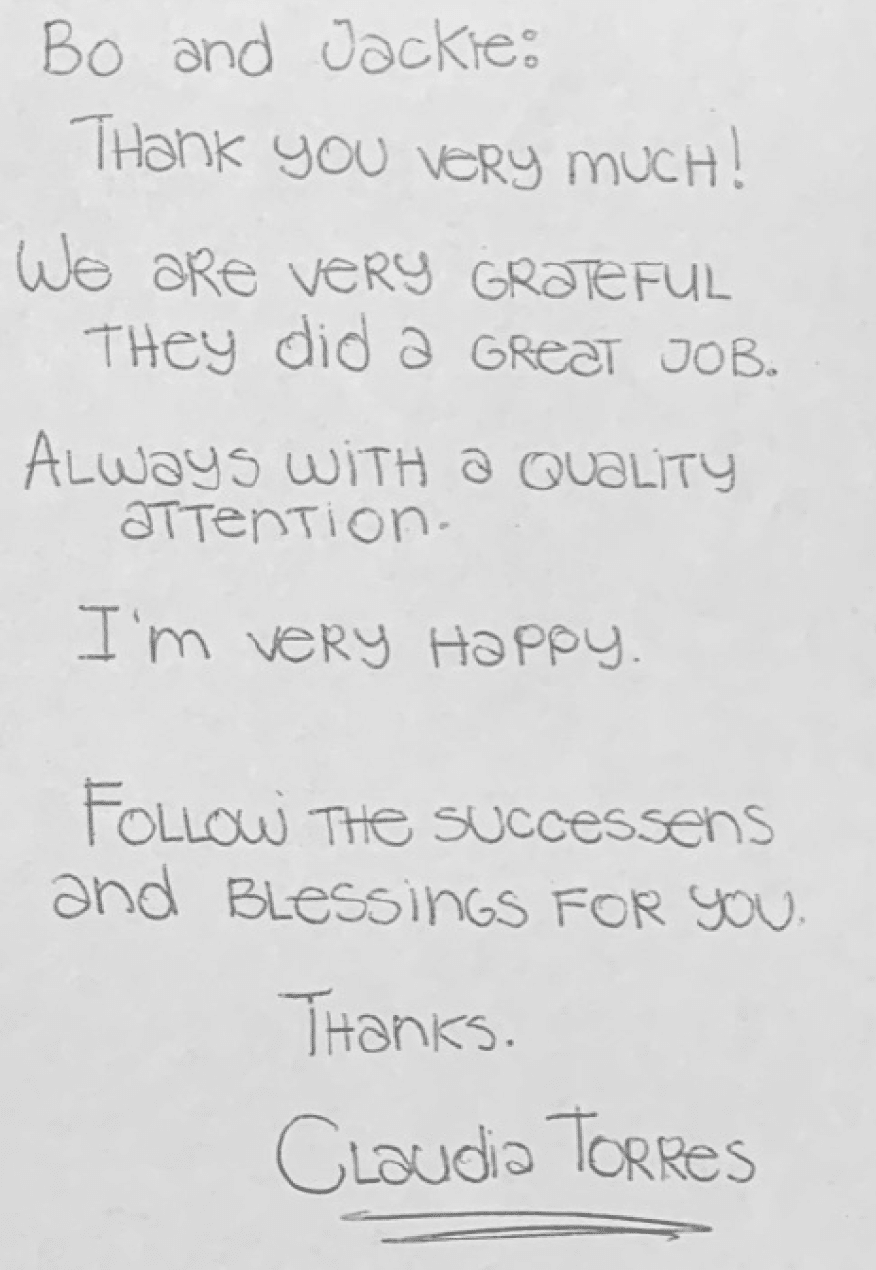 Bo and Jackie:
Thank you very much!
We are very grateful
they did a great job.
Always with a quality
attention.
I'm very happy.
Follow the successens
and blessings for you.
Thanks.
Claudia Torres